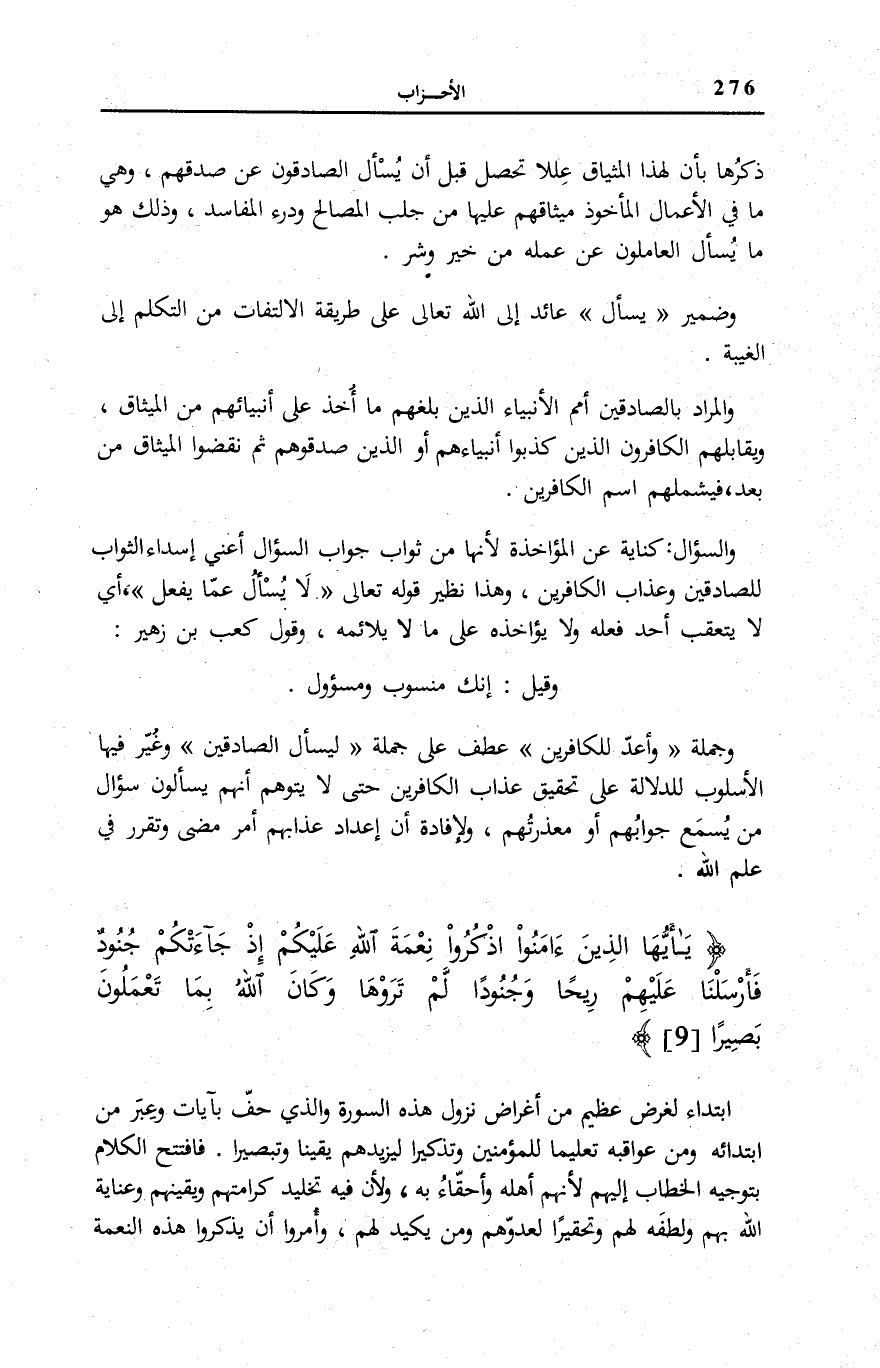 276
الأحـزاب
ذكرُها بأن لهذا المثياق عِللا تحصل قبل أن يُسْأل الصادقون عن صدقهم ، وهي
ما في الأعمال المأخوذ ميثاقهم عليها من جلب المصالح ودرء المفاسد ، وذلك هو
ما يُسأل العاملون عن عمله من خير وشر .
وضمير « يسأل » عائد إلى الله تعالى على طريقة الالتفات من التكلم إلى
الغيبة .
والمراد بالصادقين أمم الأنبياء الذين بلغهم ما أُخذ على أنبيائهم من الميثاق ،
ويقابلهم الكافرون الذين كذبوا أنبياءهم أو الذين صدقوهم ثم نقضوا الميثاق من
بعد،فيشملهم اسم الكافرين .
والسؤال:كناية عن المؤاخذة لأنها من ثواب جواب السؤال أعني إسداء الثواب
للصادقين وعذاب الكافرين ، وهذا نظير قوله تعالى « لَا يُسْأَلُ عمّا يفعل »،أي
لا يتعقب أحد فعله ولا يؤاخذه على ما لا يلائمه ، وقول كعب بن زهير :
وقيل : إنك منسوب ومسؤول .
وجملة « وأعدّ للكافرين » عطف على جملة « ليسأل الصادقين » وغُيّر فيها
الأسلوب للدلالة على تحقيق عذاب الكافرين حتى لا يتوهم أنهم يسألون سؤال
من يُسمَع جوابُهم أو معذرتُهم ، ولإفادة أن إعداد عذابهم أمر مضى وتقرر في
علم الله .
﴿ يَـٰأَيُّهَا الذِينَ ءَامَنُواْ اذْكُرُواْ نِعْمَةَ ٱللهِ عَلَيْكُمْ إِذْ جَآءَتْكُمْ جُنُودٌ
فَأَرْسَلْنَا عَلَيْهِمْ رِيحًا وَجُنُودًا لَّمْ تَرَوْهَا وَكَانَ ٱللهُ بِمَا تَعْمَلُونَ
بَصِيرًا [9] ﴾
ابتداء لغرض عظيم من أغراض نزول هذه السورة والذي حفّ بآيات وعِبَر من
ابتدائه ومن عواقبه تعليما للمؤمنين وتذكيرا ليزيدهم يقينا وتبصيرا . فافتتح الكلام
بتوجيه الخطاب إليهم لأنهم أهله وأحقّاءُ به ، ولأن فيه تخليد كرامتهم ويقينهم وعناية
الله بهم ولطفَه لهم وتحقيرًا لعدوّهم ومن يكيد لهم ، وأُمروا أن يذكروا هذه النعمة